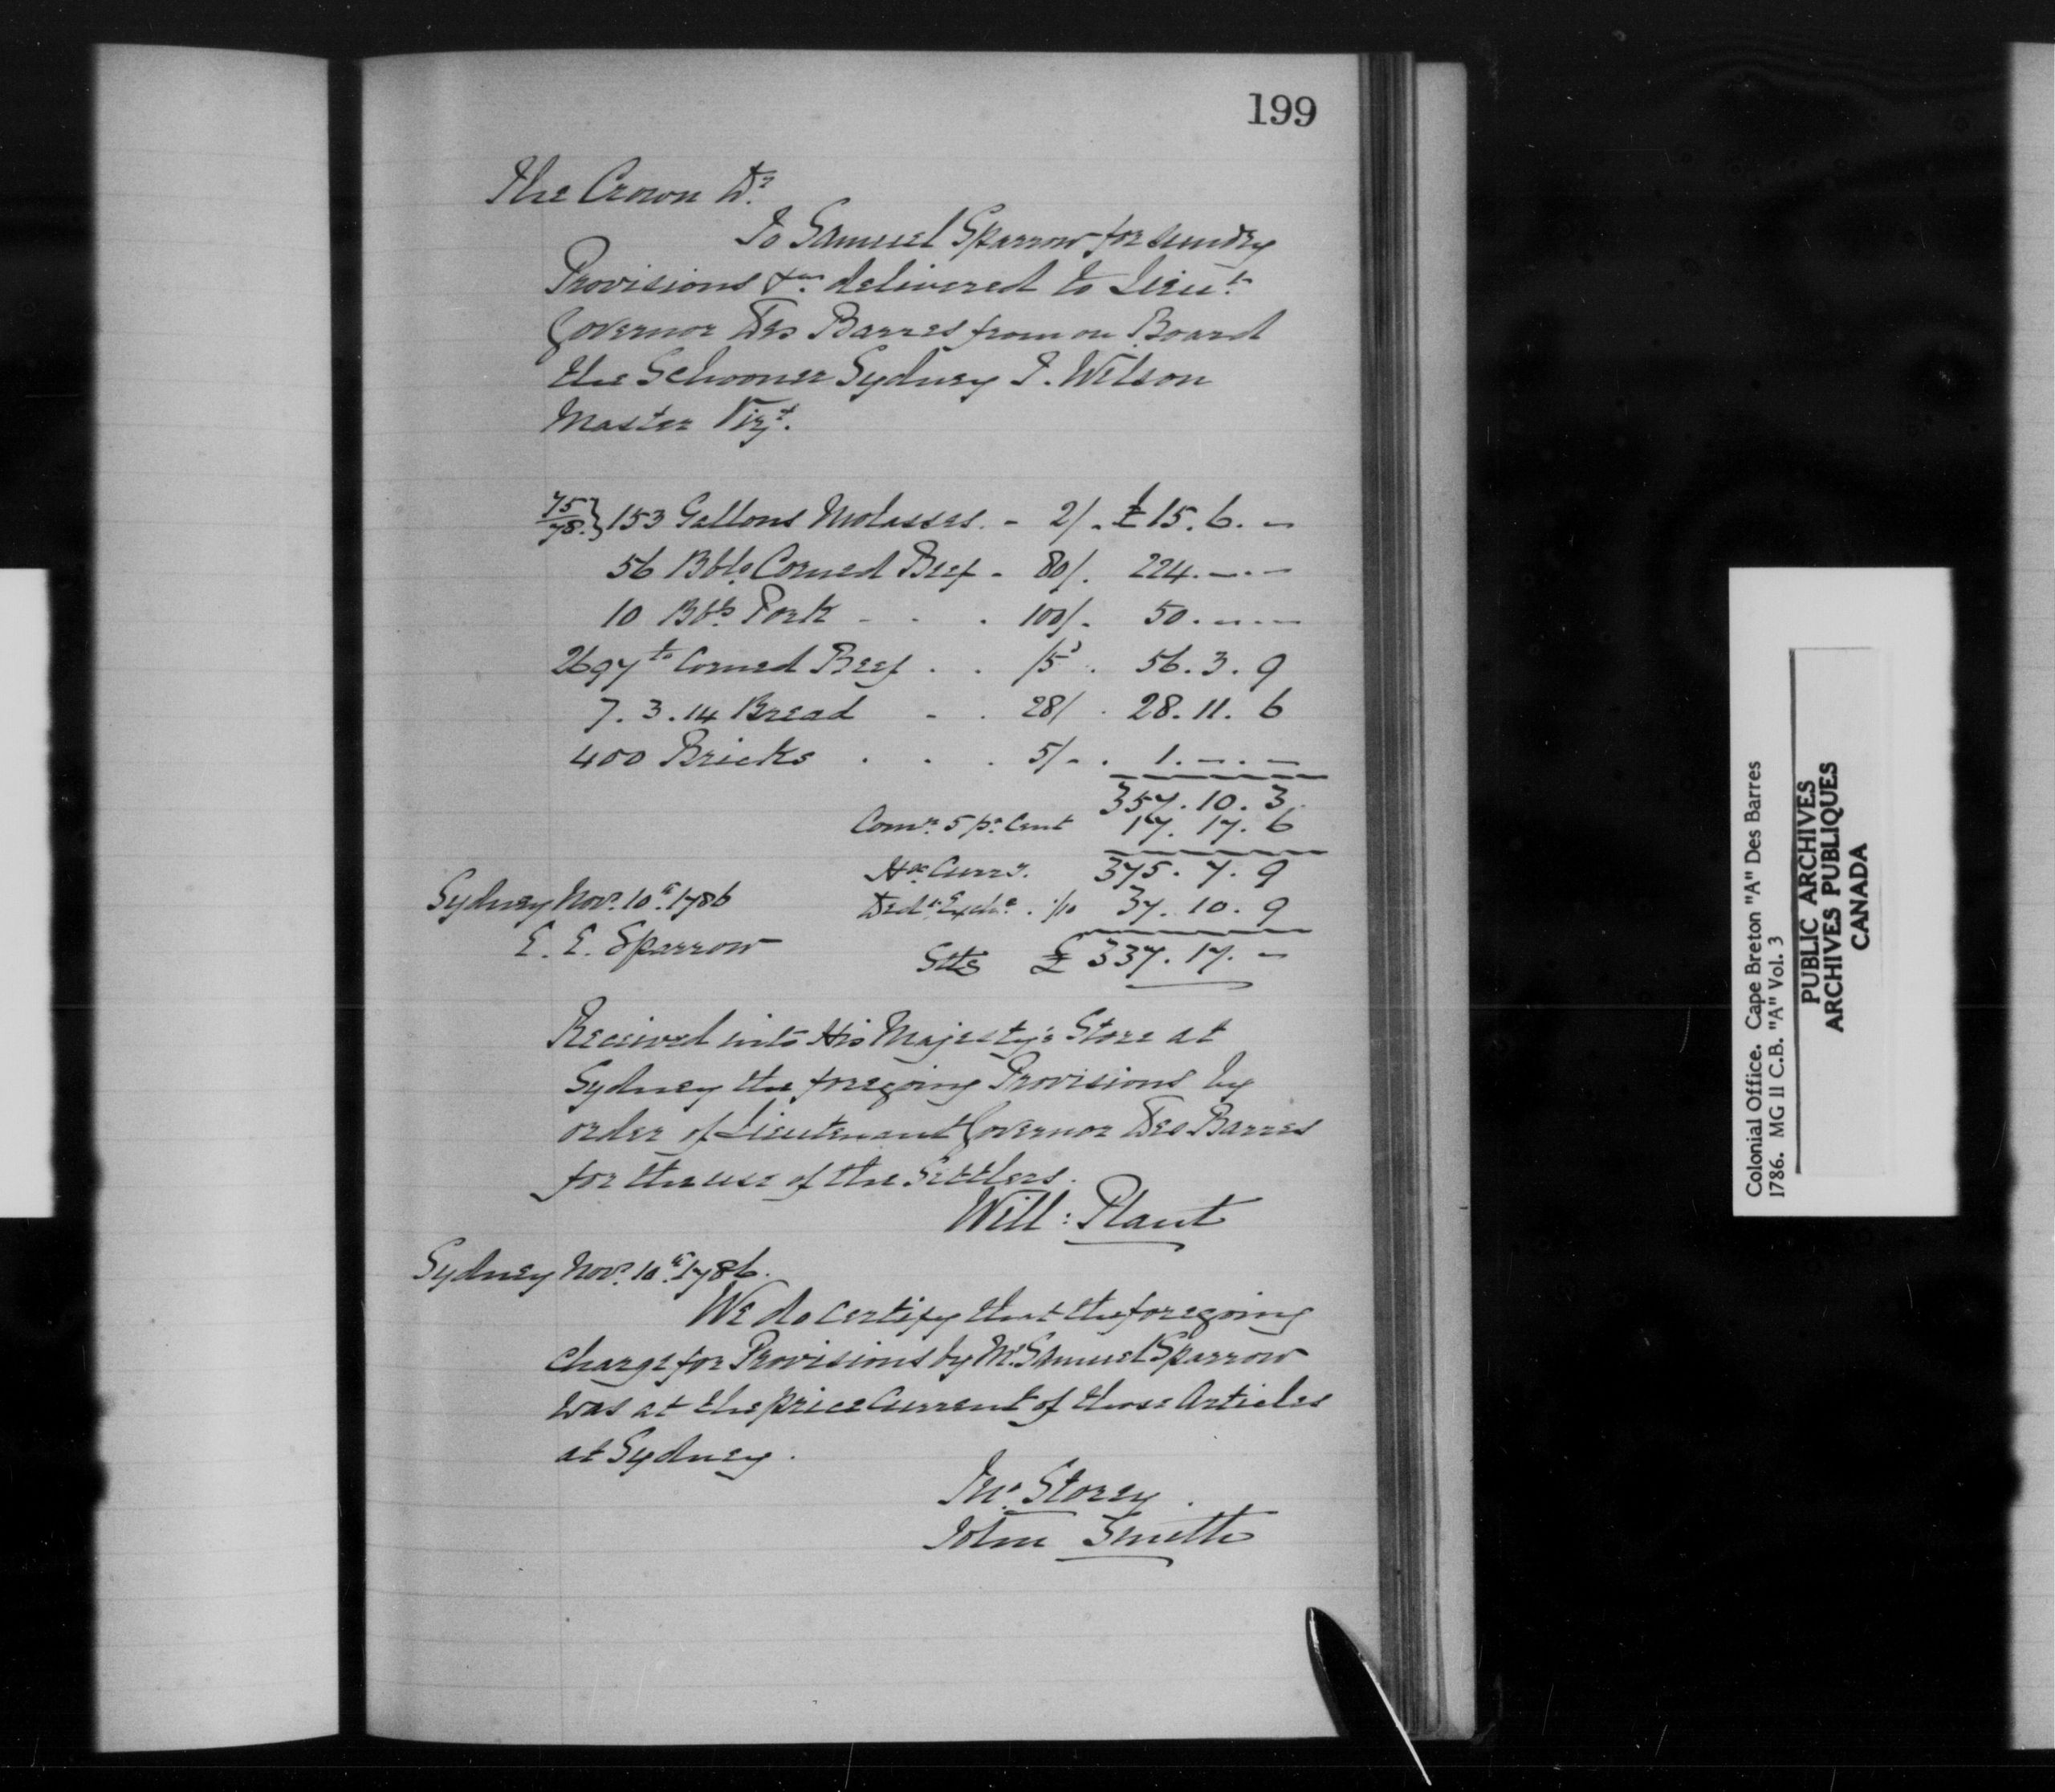 199
The Crown Dr.
To Samuel Sparrow for sundry
Provisions &ca. delivered to Lieut.
Governor Des Barres from on Board
the Schooner Sydney J. Wilson
Master Vizt.
75
78 } 153 Gallons Molasses. - 2/. £15. 6. -
56 Bbls. Corned Beef - 80/. 224. -. -
10 Bbls. Pork - . . 100/. 50. -. -
2697 lb Corned Beef . . /5d . 56. 3. 9
7. 3. 14 Bread - . 28/ . 28. 11. 6
400 Bricks . . . 5/- . 1. -. -
357. 10. 3.
Comn. 5 pr. Cent 17. 17. 6
Hx. Curry. 375. 7. 9
Sydney Novr. 10th. 1786 Dedt. Exche. . 1/10 37. 10. 9
E. E. Sparrow
Stg £ 337. 17. -
Received into His Majesty's Store at
Sydney the foregoing Provisions by
order of Lieutenant Governor Des Barres
for the use of the Settlers.
Will: Plant
Sydney Novr. 10th. 1786.
We do certify that the foregoing
charge for Provisions by Mr. Samuel Sparrow
was at the price Current of those Articles
at Sydney.
Jno. Storey.
John Smith
Colonial Office. Cape Breton "A" Des Barres
1786. MG II C.B. "A" Vol. 3
PUBLIC ARCHIVES
ARCHIVES PUBLIQUES
CANADA